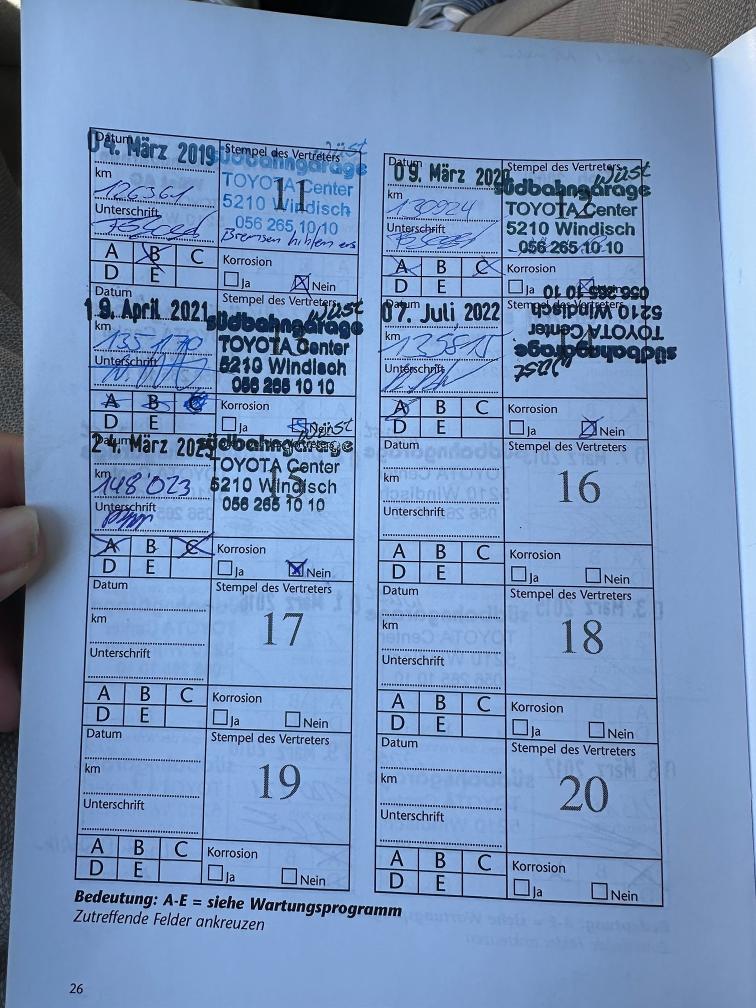 Datum
04. März 2019
km
126361
Unterschrift
Stempel des Vertreters
11
südbahngarage
Wüst
TOYOTA Center
5210 Windisch
056 265 10 10
Bremsen
A B C
D E
Korrosion
Ja Nein
Datum
09. März 2020
km
130924
Unterschrift
Stempel des Vertreters
südbahngarage
Wüst
TOYOTA Center
5210 Windisch
056 265 10 10
A B C
D E
Korrosion
Ja
Datum
19. April 2021
km
135170
Unterschrift
Stempel des Vertreters
südbahngarage
Wüst
TOYOTA Center
5210 Windisch
056 265 10 10
A B
D E
Korrosion
Ja Nein
Datum
07. Juli 2022
km
Unterschrift
Stempel des Vertreters
südbahngarage
Wüst
TOYOTA Center
5210 Windisch
056 265 10 10
A B C
D E
Korrosion
Ja Nein
Datum
24. März 2025
km
148'023
Unterschrift
Vertreters
südbahngarage
Wüst
TOYOTA Center
5210 Windisch
056 265 10 10
15
A B C
D E
Korrosion
Ja Nein
Datum
km
Unterschrift
Stempel des Vertreters
16
A B C
D E
Korrosion
Ja Nein
Datum
km
Unterschrift
Stempel des Vertreters
17
A B C
D E
Korrosion
Ja Nein
Datum
km
Unterschrift
Stempel des Vertreters
18
A B C
D E
Korrosion
Ja Nein
Datum
km
Unterschrift
Stempel des Vertreters
19
A B C
D E
Korrosion
Ja Nein
Datum
km
Unterschrift
Stempel des Vertreters
20
A B C
D E
Korrosion
Ja Nein
Bedeutung: A-E = siehe Wartungsprogramm
Zutreffende Felder ankreuzen
26